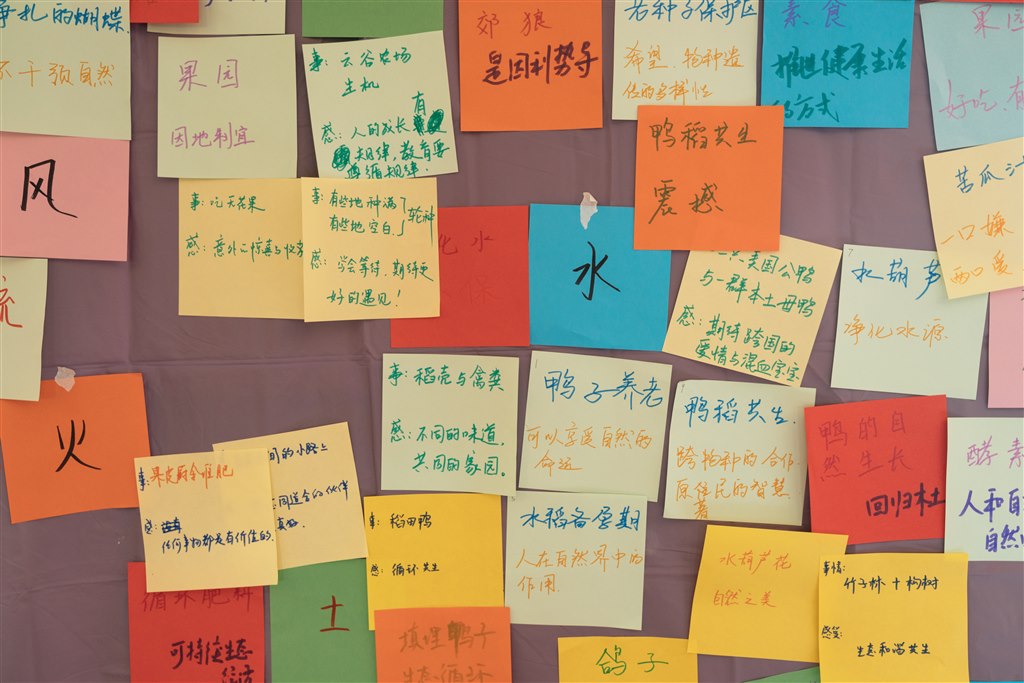 争扎的蝴蝶
不干预自然
果园
因地制宜
事：云谷农场
生机
有
感：人的成长
规律，教育要
遵循规律.
郊狼
是因利势导
若种子保护区
希望.物种遗
传的多样性
素食
推进健康生活
的方式
果园
好吃.有
鸭稻共生
震撼
苦瓜汁
一口嫌
两口爱
风
事：吃天花果
感：意外
事：有些地种满了
有些地空白.
轮种
感：学会等待.期待更
好的遇见！
化水
水
美国公鸭
与一群本土母鸭
感：期待跨国的
爱情与混血宝宝
水葫芦
净化水源
流
火
事：稻壳与禽粪
感：不同的味道，
共同的家园。
鸭子养老
可以享受自然的
命运
鸭稻共生.
跨物种的合作
原住民的智慧
鸭的自
然生长
回归本土
酵素
人和自
自然
事：果皮厨余堆肥
感：
任何事物都是有价值的.
间的小路上
志同道合的伙伴
真好.
事：稻田鸭
感：循环共生
水稻备孕期
人在自然界中的
作用.
水葫芦花
自然之美
事情：
竹子林＋构树
感受：
生态和谐共生
循环肥料
可持续生态
土
填埋鸭子
生态循环
鸽子